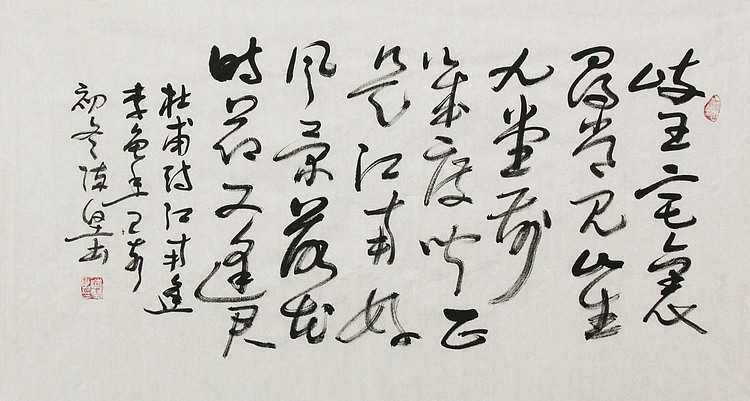 岐王宅裏
尋常見崔
九堂前
幾度聞正
是江南好
風景落花
時節又逢君
杜甫詩江南逢
李龜年
初冬陳